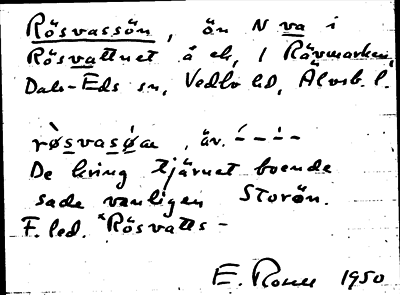 Rösvassön, ön N va i
Rösvattnet å ek, / Rävmarken,
Dals-Eds sn, Vedbo hd, Älvsb. l.
røsvasøæ, äv. ´ – – ` –
De kring tjärnet boende
sade vanligen Storön.
F. led. *Rösvatts-
E. 1950